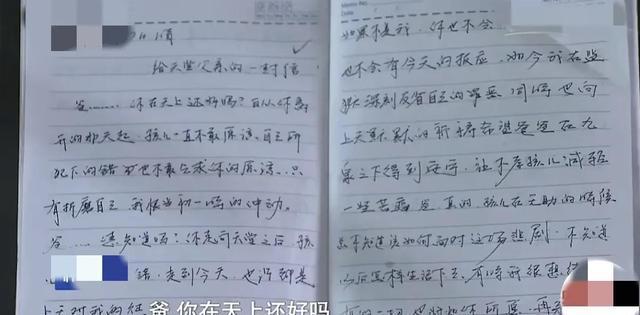 给天堂父亲的一封信
爸……你在天上还好吗？自从你离
开的那天起，孩儿一直不敢原谅自己所
犯下的错，也不敢乞求你的原谅，只
有折磨自己，我恨当初一时的冲动。
爸……还知道吗？你走向天堂之后，孩
错，走到今天，也许都是
上天对我的
如果不是我，你也不会
也不会有今天的报应，如今我在监
狱深刻反省自己的罪恶，同时也向
上天默默的祈祷希望爸爸在九
泉之下得到安宁，让不孝孩儿减轻
一些苦痛，爸，真的，孩儿在无助的时候
总不知道该如何面对这场悲剧，不知道
以后怎样生活下去，有时所很想
爷 你在天上还好吗